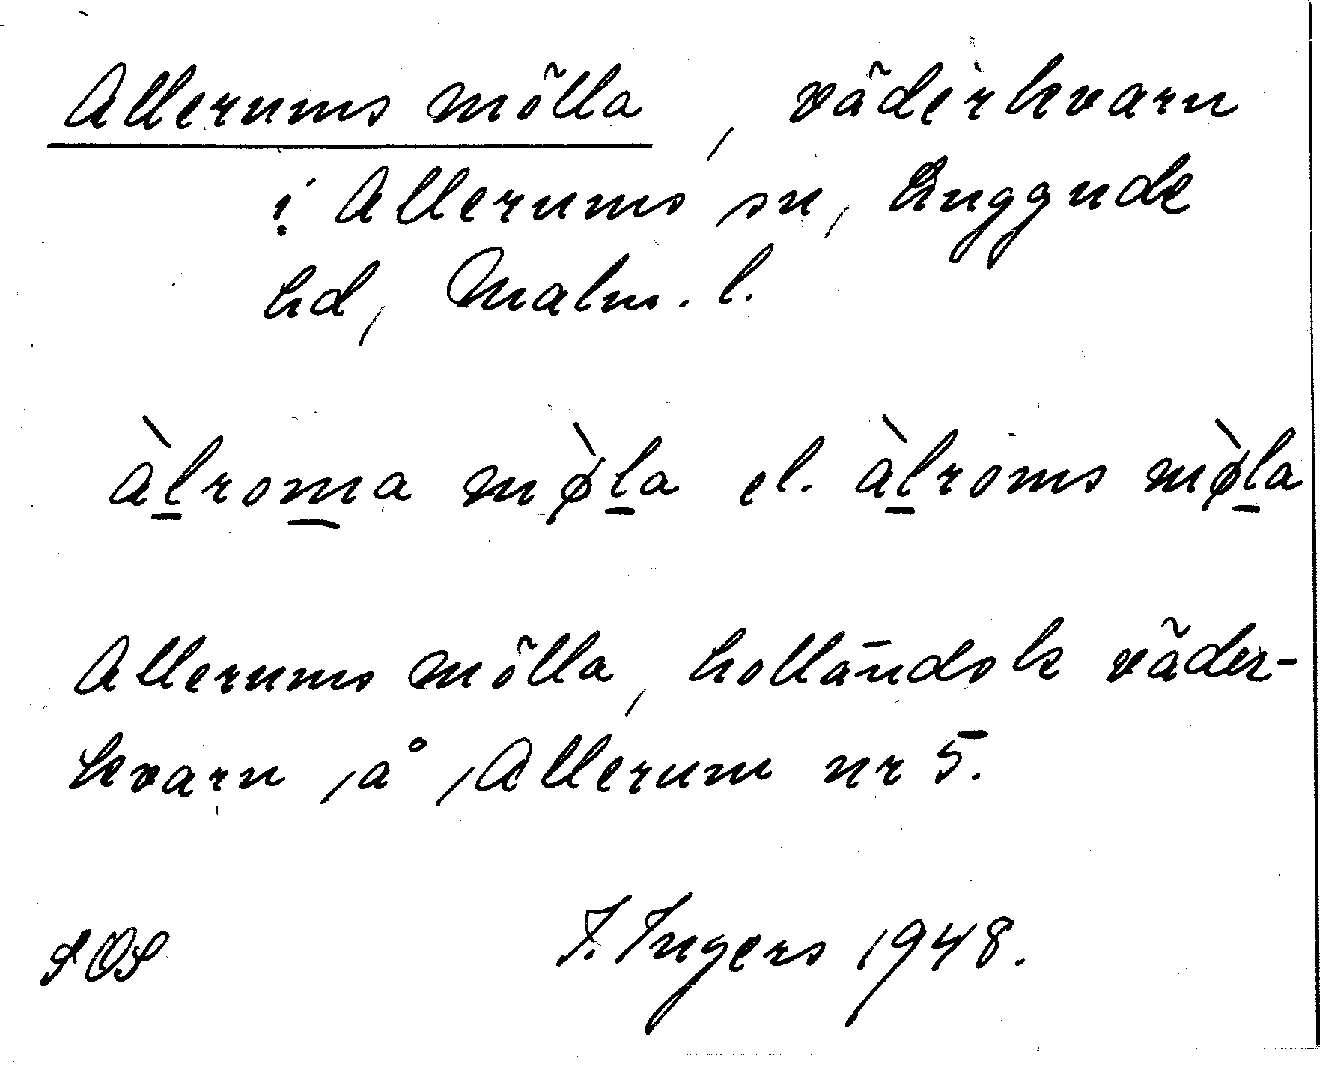 Allerums mölla, väderkvarn
i Allerums sn, Luggude
hd, Malm. l.
àl̠rom̠a mø̀l̠a el. àl̠roms mø̀l̠a
Allerums mölla, holländsk väder-
kvarn å Allerum nr 5.
SOS I. Ingers 1948.